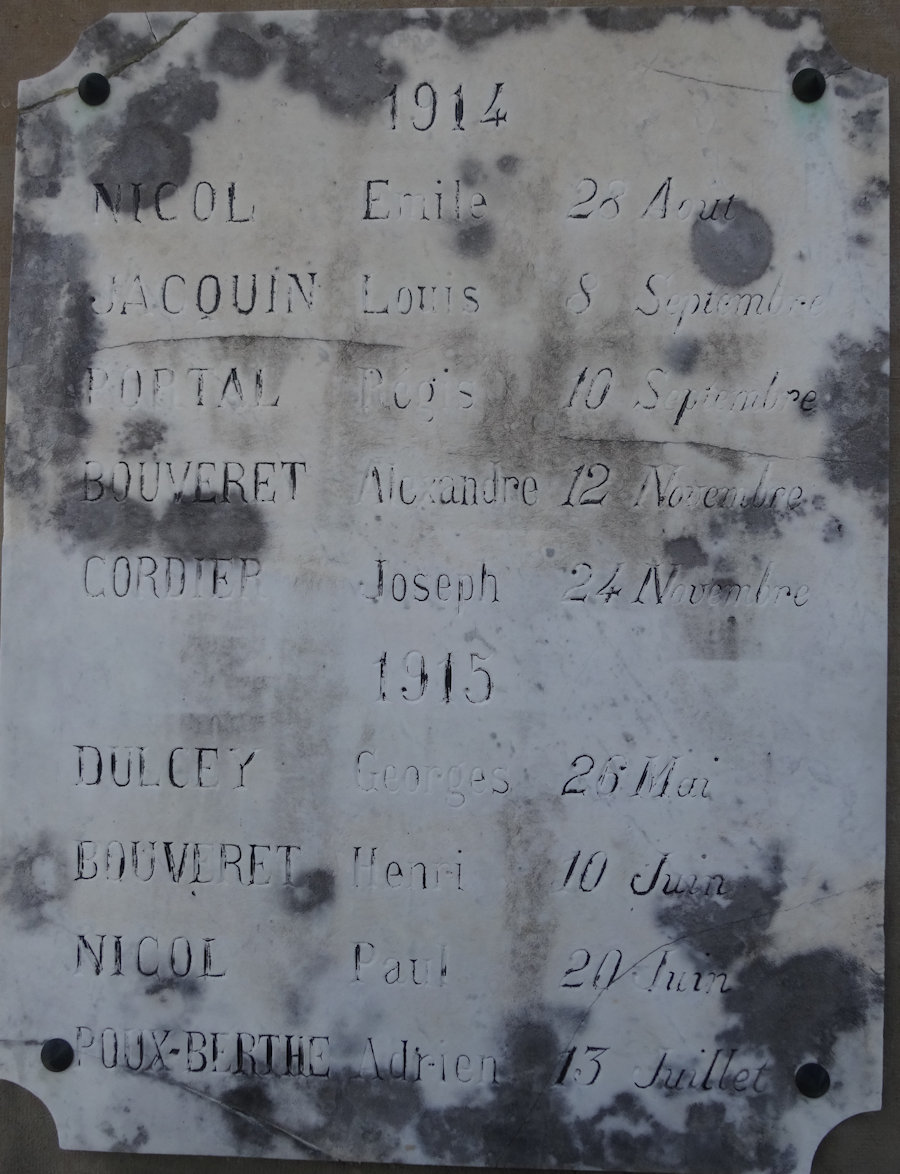 1914
NICOL Emile 28 Août
JACQUIN Louis 8 Septembre
PORTAL Régis 10 Septembre
BOUVERET Alexandre 12 Novembre
CORDIER Joseph 24 Novembre
1915
DULCEY Georges 26 Mai
BOUVERET Henri 10 Juin
NICOL Paul 20 Juin
POUX-BERTHE Adrien 13 Juillet